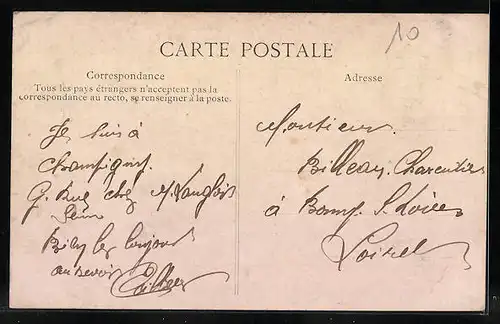 10
CARTE POSTALE
Correspondance
Tous les pays étrangers n'acceptent pas la
correspondance au recto, se renseigner à la poste.
Je suis à
Champigny.
chez M. Langlois
toujours
au revoir
Adresse
Monsieur
Billeau. Charcutier
à Bonny S. Loire
Loiret